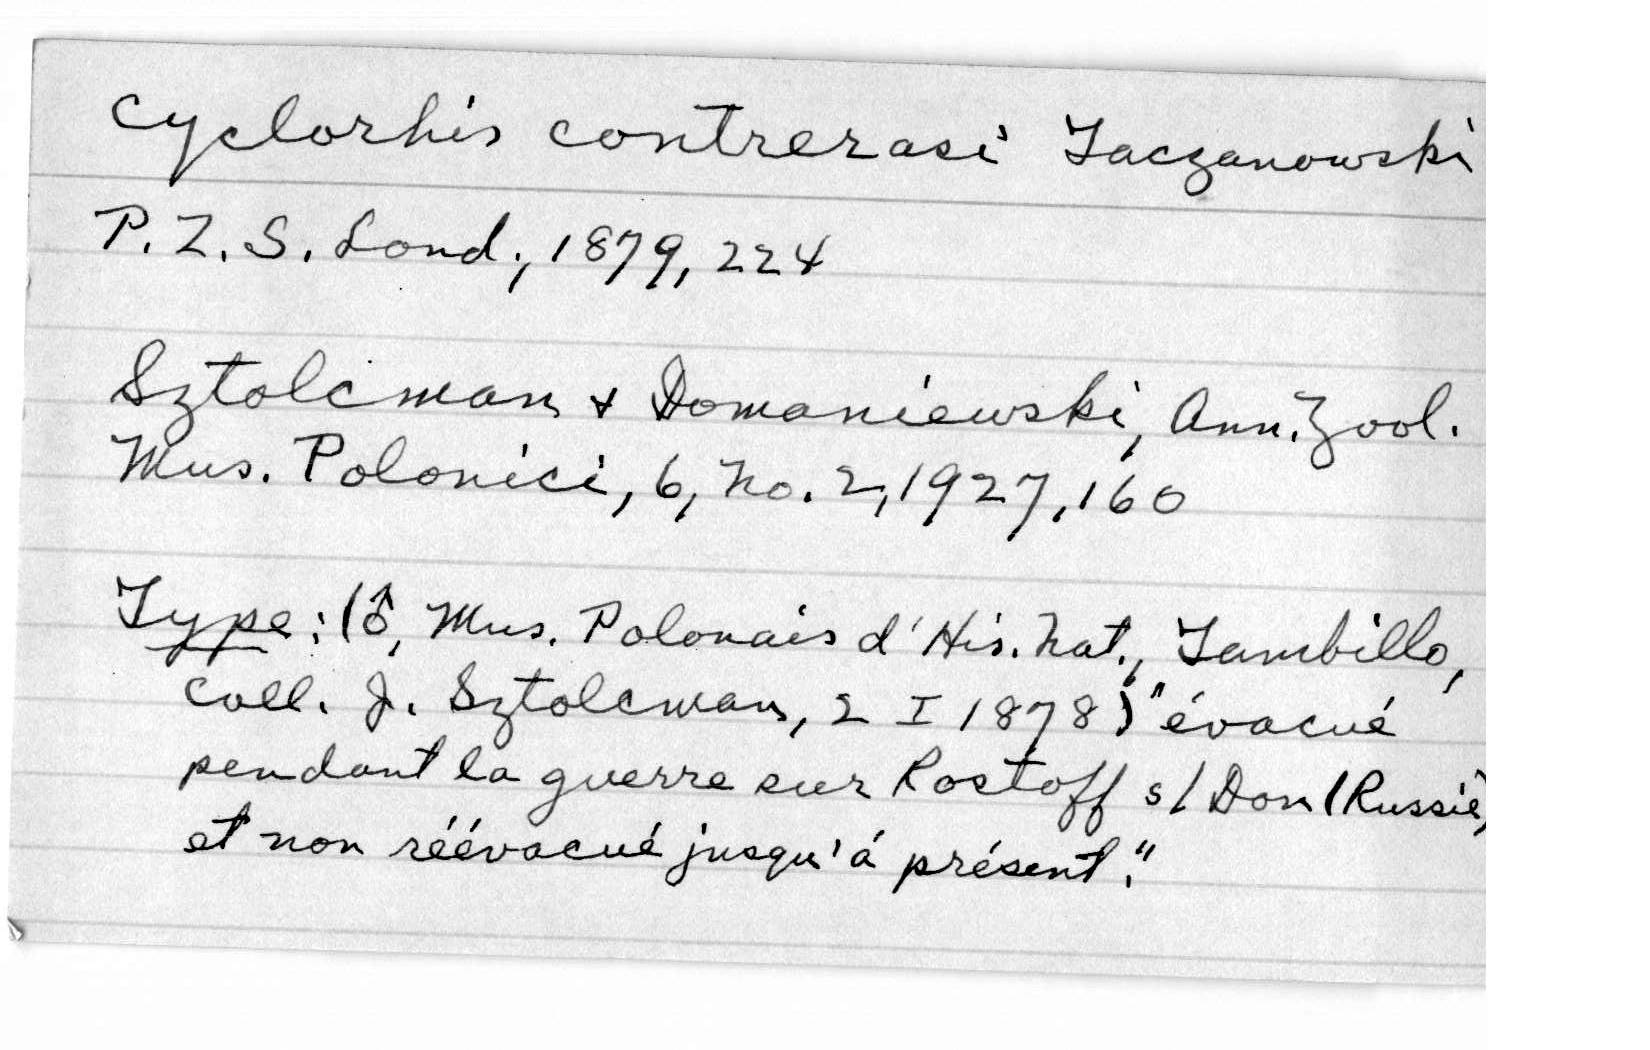 Cyclorhis contrerasi Taczanowski
P. Z. S. Lond., 1879, 224
Sztolcman & Domaniewski, Ann. Zool.
Mus. Polonici, 6, No. 2, 1927, 160
Type: (♂, Mus. Polonais d'His. Nat., Tambillo,
Coll. J. Sztolcman, 2 I 1878) "évacué
pendant la guerre sur Rostoff s/Don (Russie)
et non réévacué jusqu'á présent."